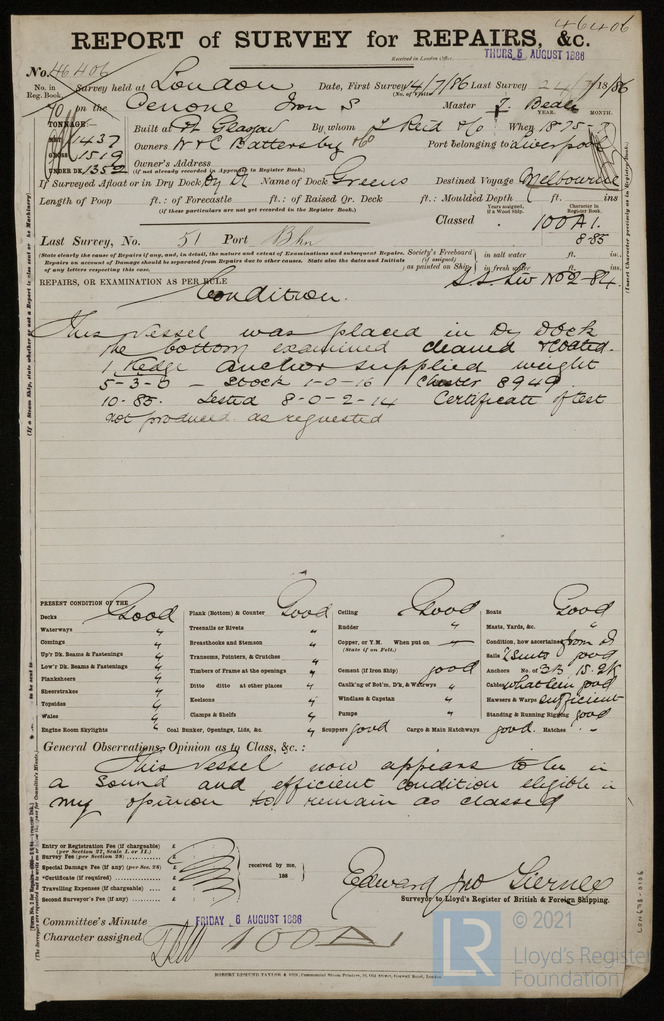 46406
REPORT of SURVEY for REPAIRS, &c.
Received in London Office, THURS. 5 AUGUST 1886
No. 46406
No. in Reg. Book. Survey held at London Date, First Survey 14/7/86 Last Survey 24/7/1886
(No. of Visits)
70 on the Oenone Iron S Master J. Beale
YEAR. MONTH.
TONNAGE:— Built at Pt Glasgow By whom J Reid & Co When 1875 - 7
NET 1437
GROSS 1519 Owners W & C Battersby & Co Port belonging to Liverpool
UNDER DK. 1352 Owner's Address
(if not already recorded in Appendix to Register Book.)
If Surveyed Afloat or in Dry Dock Dry Dk Name of Dock Greens Destined Voyage Melbourne
Length of Poop ft.: of Forecastle ft.: of Raised Qr. Deck ft.: Moulded Depth ft. ins
(if these particulars are not yet recorded in the Register Book.)
Years assigned, if a Wood Ship. Character in Register Book.
Classed 100 A 1.
8.85
Last Survey, No. 51 Port Bhn
(State clearly the cause of Repairs if any, and, in detail, the nature and extent of Examinations and subsequent Repairs. Society's Freeboard in salt water ft. in.
Repairs on account of Damage should be separated from Repairs due to other causes. State also the dates and Initials (if assigned)
of any letters respecting this case. as painted on Ship in fresh water ft. in.
REPAIRS, OR EXAMINATION AS PER RULE S.S. Liv No 2-84
Condition.
This Vessel was placed in Dry Dock
the bottom examined cleaned & coated.
1 Kedge anchor supplied weight
5-3-0 - Stock 1-0-16 Chester 8949
10-85. Tested 8-0-2-14 Certificate of test
not produced as requested
PRESENT CONDITION OF THE
Decks Good Plank (Bottom) & Counter Good Ceiling Good Boats Good
Waterways " Treenails or Rivets " Rudder " Masts, Yards, &c. "
Comings " Breasthooks and Stemson " Copper, or Y.M. When put on — Condition, how ascertained from Dk
(State if on Felt.)
Up'r Dk. Beams & Fastenings " Transoms, Pointers, & Crutches " Sails 2 Suits good
Low'r Dk. Beams & Fastenings " Timbers of Frame at the openings " Cement (if Iron Ship) good Anchors No. of 3 B. 1 S. 2 K
Planksheers " Ditto ditto at other places " Caulk'ng of Bot'm, D'k, & Waterways " Cables what seen good
Sheerstrakes " Keelsons " Windlass & Capstan " Hawsers & Warps sufficient
Topsides " Clamps & Shelfs " Pumps " Standing & Running Rigging good
Wales "
Engine Room Skylights " Coal Bunker, Openings, Lids, &c. " Scuppers good Cargo & Main Hatchways good. Hatches "
General Observations, Opinion as to Class, &c.:
This Vessel now appears to be in
a sound and efficient condition eligible in
my opinion to remain as classed
Entry or Registration Fee (if chargeable) £
(per Section 27, Scale I. or II.)
Survey Fee (per Section 28) £
Special Damage Fee (if any) (per Sec. 28) £ received by me,
*Certificate (if required) £ 188
Travelling Expenses (if chargeable) £
Second Surveyor's Fee (if any) £
Edward Jno Tierney
Surveyor to Lloyd's Register of British & Foreign Shipping.
Committee's Minute FRIDAY 6 AUGUST 1886
Character assigned 100 A1
ROBERT EDMUND TAYLOR & SON, Commercial Steam Printers, 19, Old Street, Goswell Road, London.
LR
© 2021
Lloyd's Register
Foundation